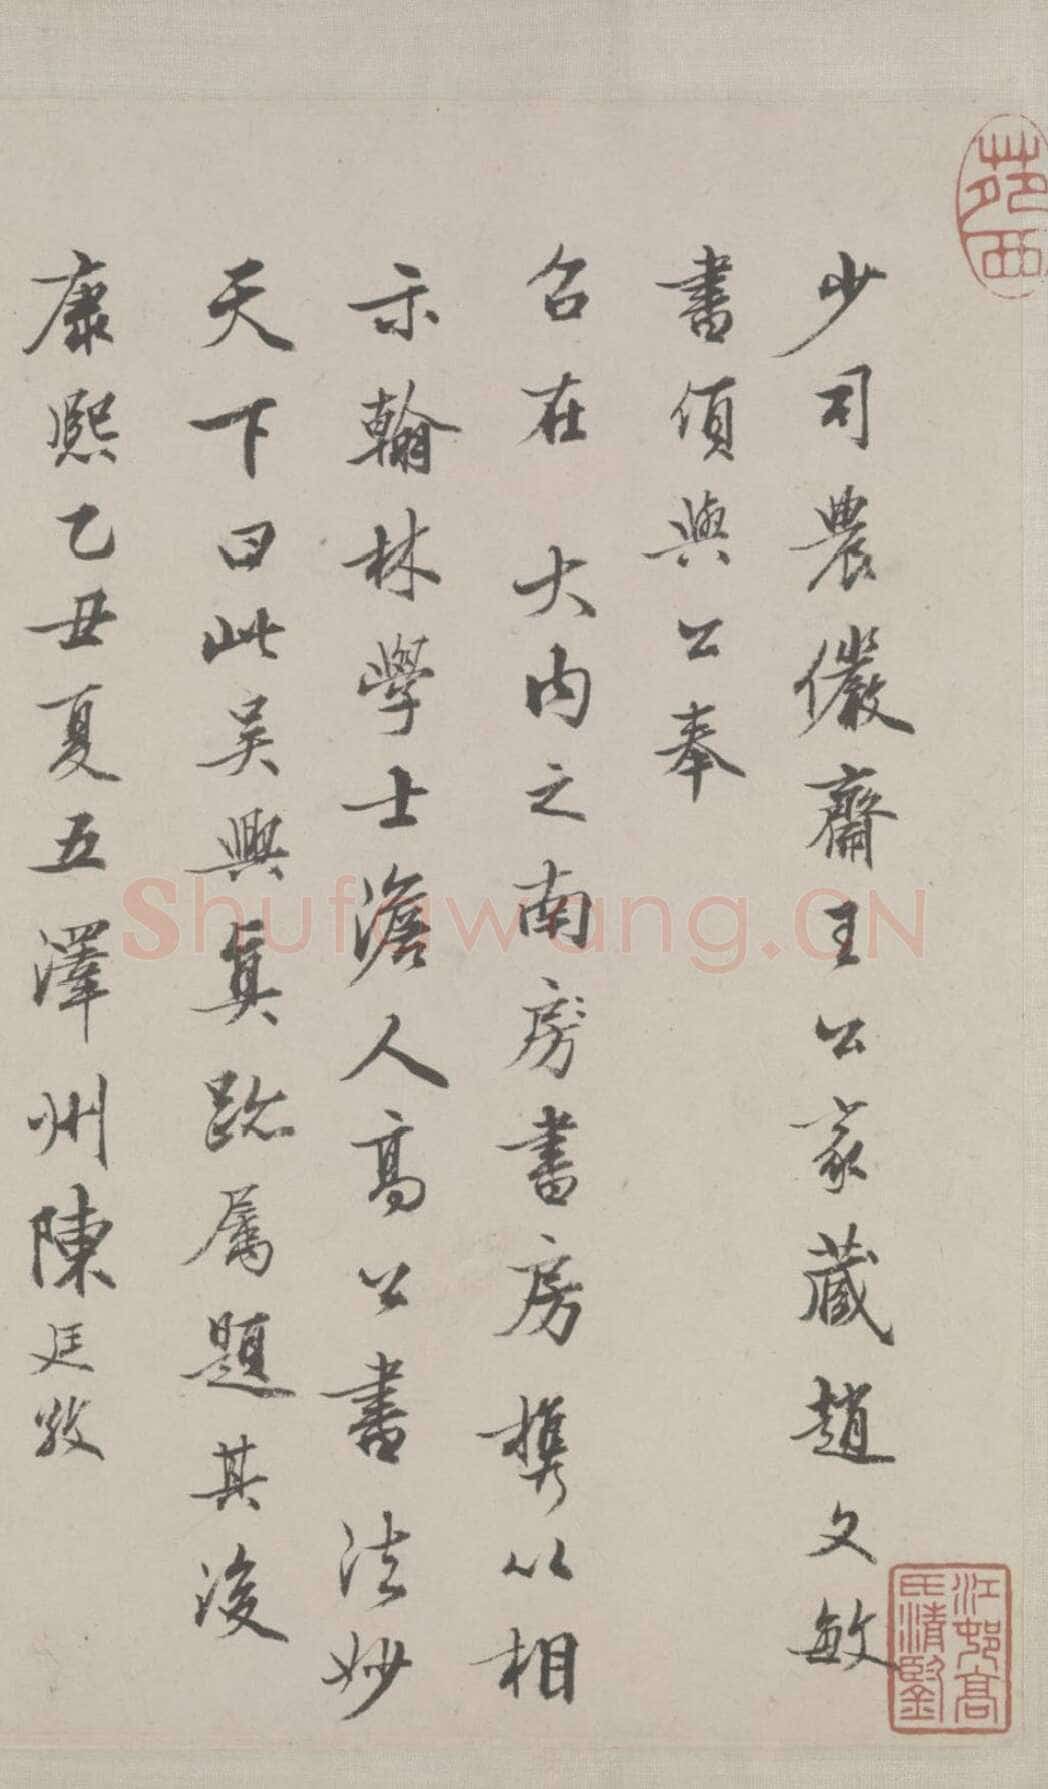 苑西
少司農儼齋王公家藏趙文敏
書傾與公奉
召在 大内之南房書房攜以相
示翰林學士澹人高公書法妙
天下曰此吴興真跡屬題其後
康熙乙丑夏五澤州陳廷敬
江邨高
氏清鑒
Shufawang.CN